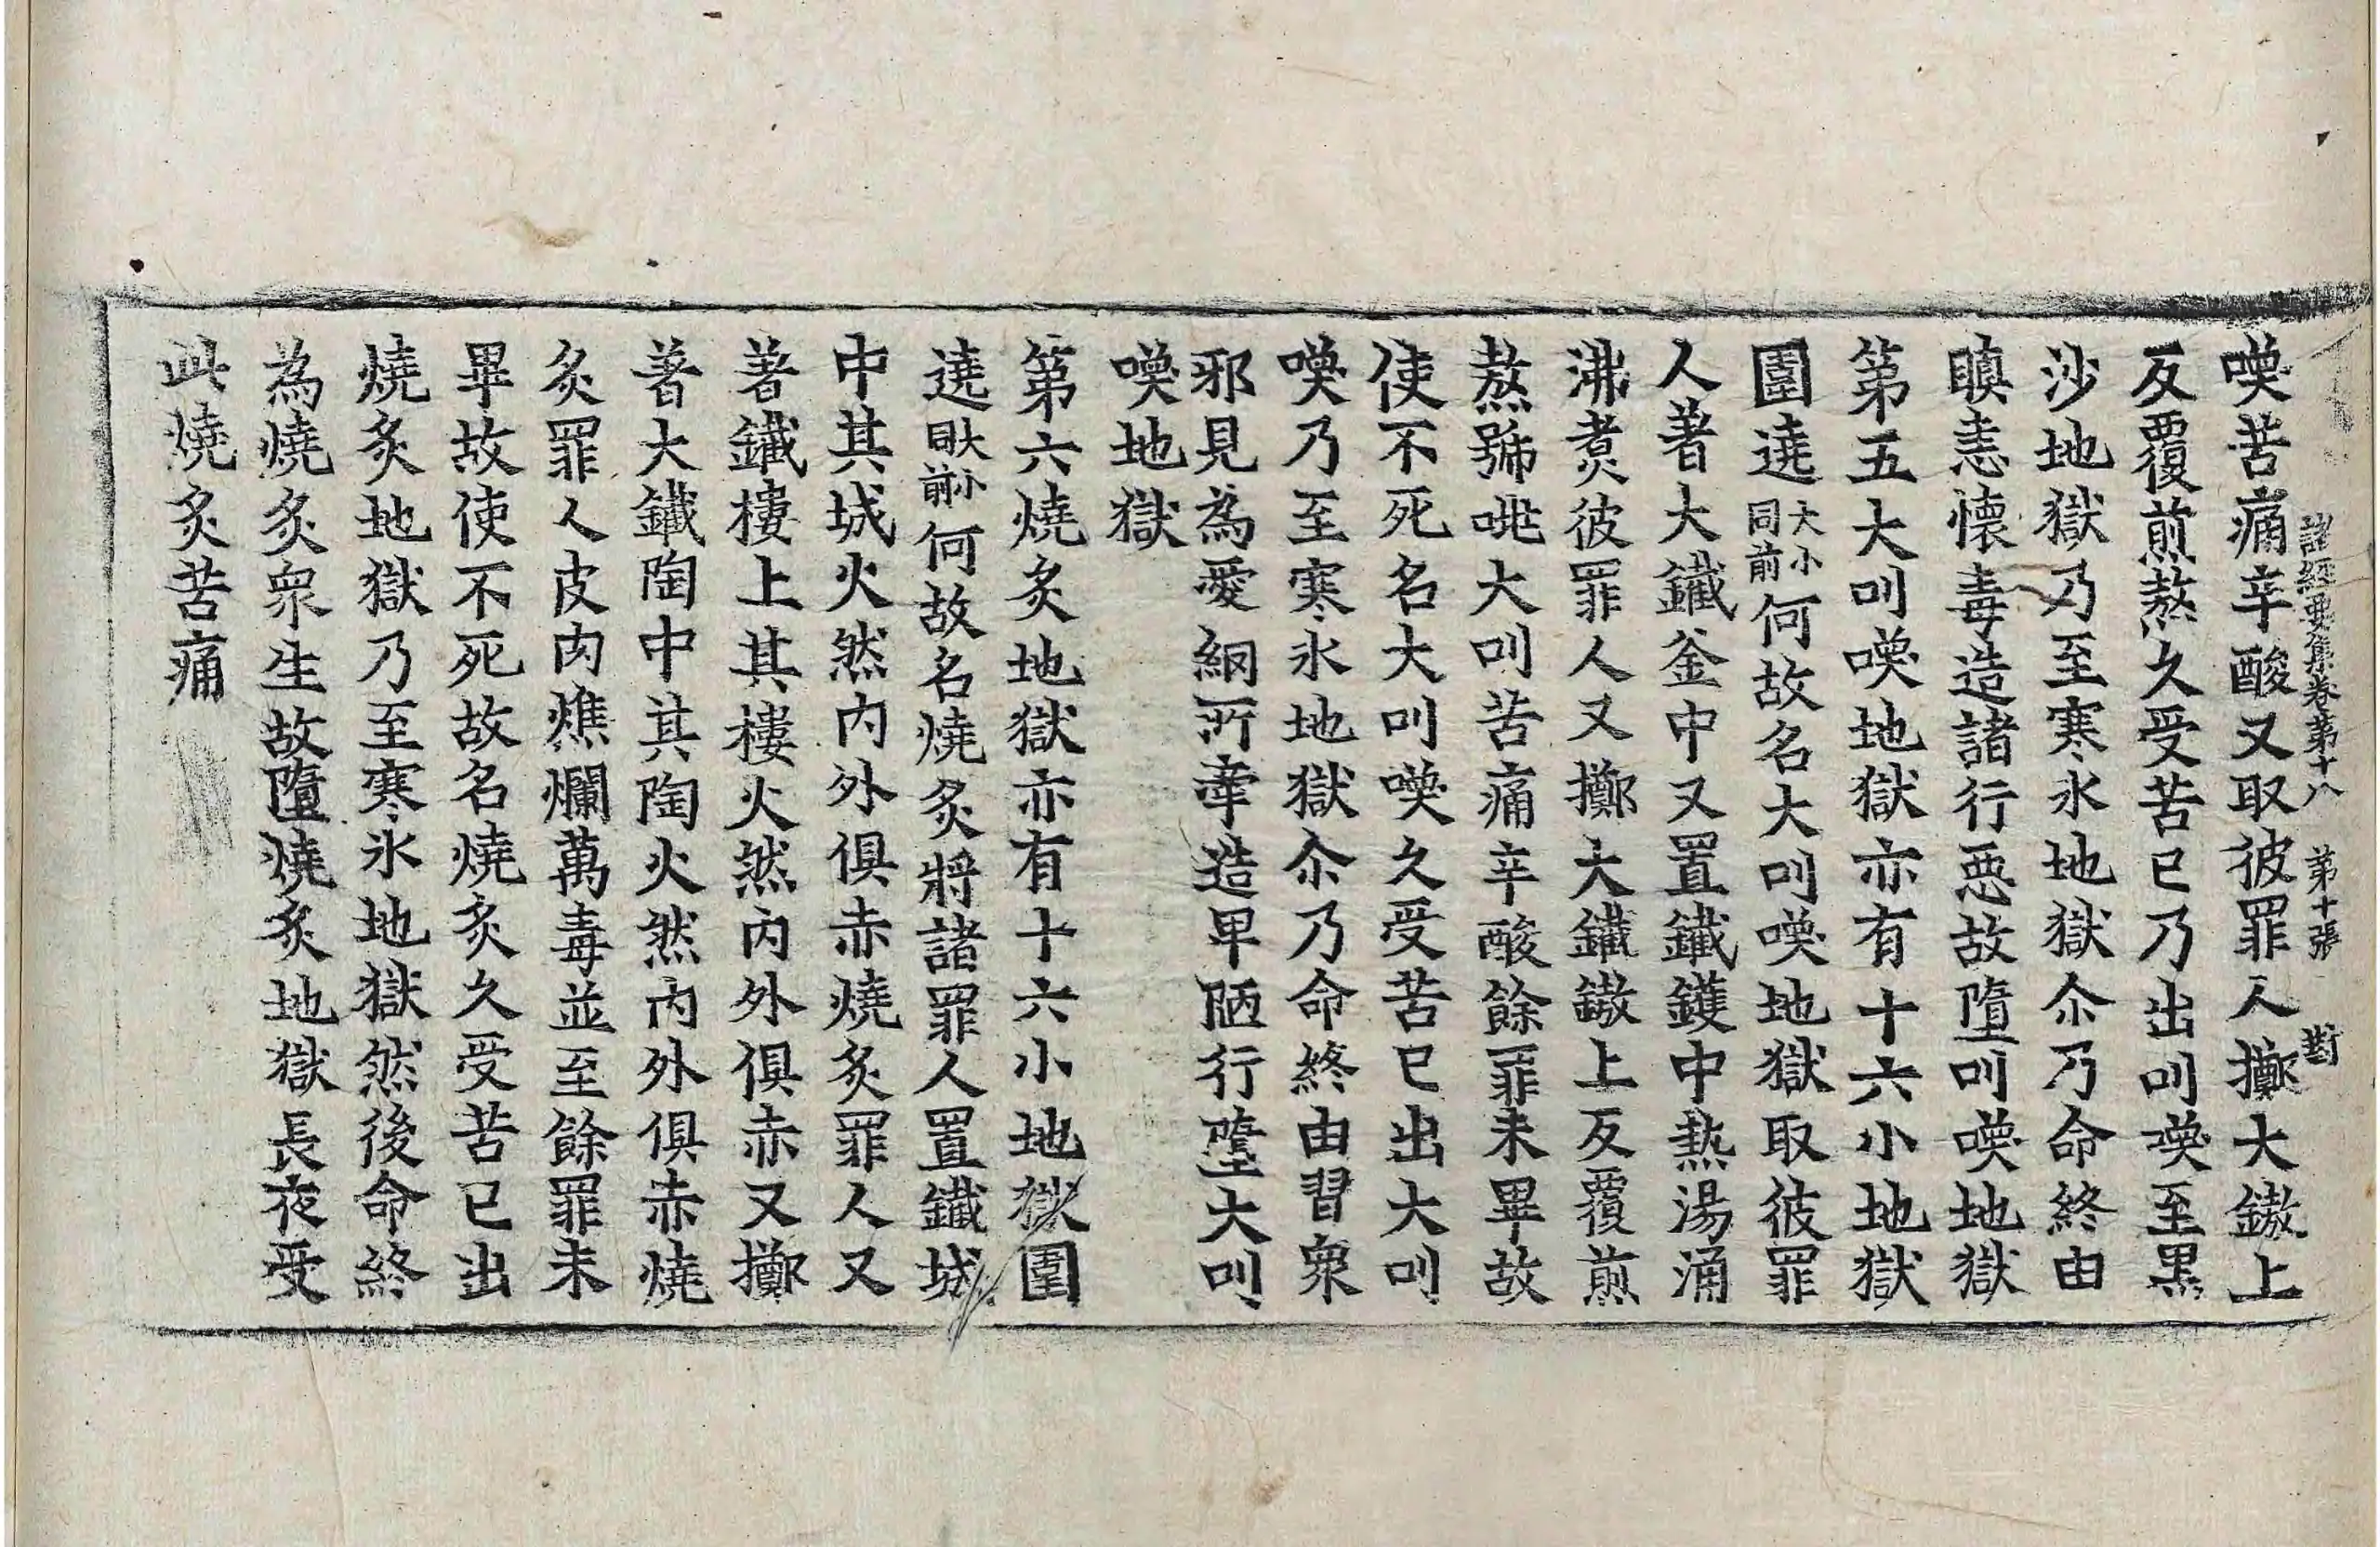 諸經要集卷第十八　第十張　對
喚苦痛辛酸又取彼罪人擲大鏊上
反覆煎熬久受苦已乃出叫喚至黒
沙地獄乃至寒氷地獄尒乃命終由
瞋恚懷毒造諸行惡故墮叫喚地獄
第五大叫喚地獄亦有十六小地獄
圍遶大小同前何故名大叫喚地獄取彼罪
人著大鐵釜中又置鐵鑊中熱湯涌
沸煮彼罪人又擲大鐵鏊上反覆煎
熬號咷大叫苦痛辛酸餘罪未畢故
使不死名大叫喚久受苦已出大叫
喚乃至寒氷地獄尒乃命終由習衆
邪見為愛網所牽造卑陋行墮大叫
喚地獄
第六燒炙地獄亦有十六小地獄圍
遶大小同前何故名燒炙將諸罪人置鐵城
中其城火然内外俱赤燒炙罪人又
著鐵樓上其樓火然内外俱赤又擲
著大鐵陶中其陶火然内外俱赤燒
炙罪人皮肉燋爛萬毒並至餘罪未
畢故使不死故名燒炙久受苦已出
燒炙地獄乃至寒氷地獄然後命終
為燒炙衆生故墮燒炙地獄長夜受
此燒炙苦痛